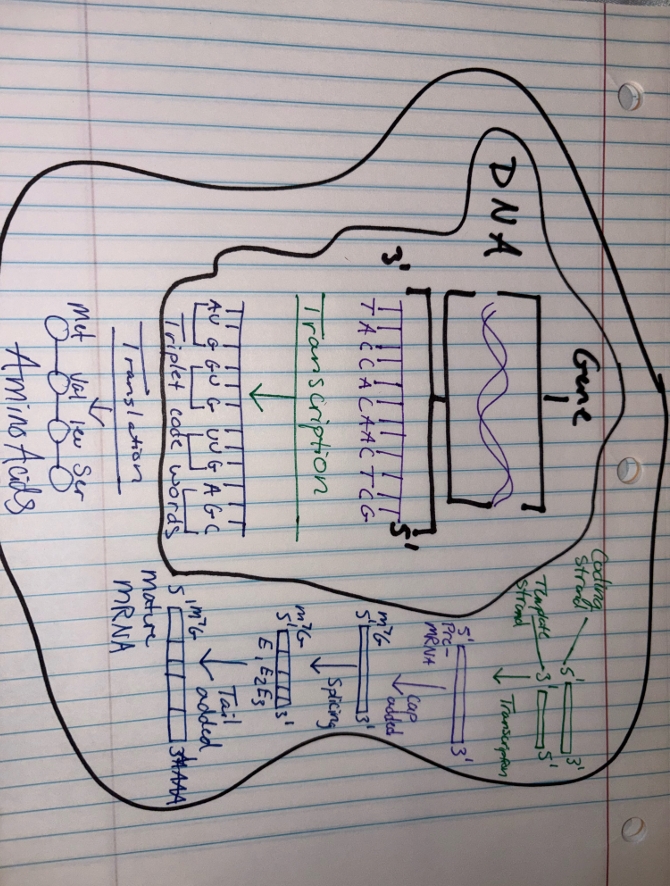 Gene 1
DNA
3' 5'
T A C C A C A A C T C G
Transcription
A U G G U G U U G A G C
Triplet code words
Translation
Met Val leu Ser
Amino Acids
Coding
Strand
5' 3'
Template
Strand
3' 5'
Transcription
5' 3'
Pre-
mRNA
Cap
added
m⁷G
5' 3'
Splicing
m⁷G
5' 3'
E₁ E₂ E₃
Tail
added
m⁷G
5' 3'AAAAA
Mature
mRNA